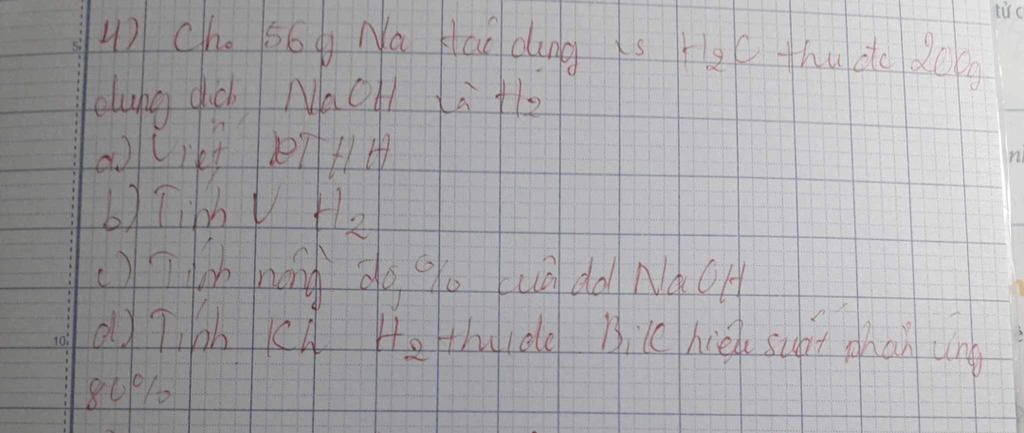 4) Cho 56g Na tác dụng H₂O thu đc 200g
dung dịch NaOH và H₂
a) Viết PTHH
b) Tính V H₂
c) Tính nồng độ % của dd NaOH
d) Tính Kh H₂ thu đc Biết hiệu suất phản ứng
80%